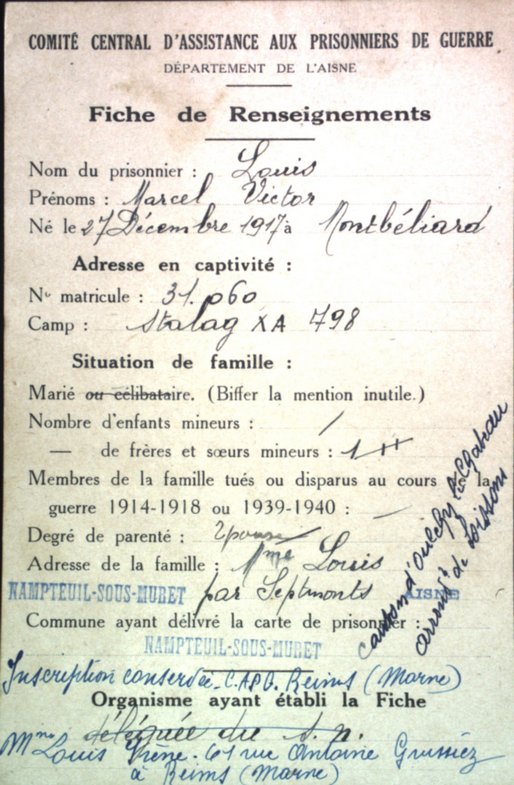 COMITÉ CENTRAL D'ASSISTANCE AUX PRISONNIERS DE GUERRE
DÉPARTEMENT DE L'AISNE
Fiche de Renseignements
Nom du prisonnier : Louis
Prénoms : Marcel Victor
Né le 27 Décembre 1917 à Montbéliard
Adresse en captivité :
No matricule : 31.060
Camp : Stalag XA 798
Situation de famille :
Marié ou célibataire. (Biffer la mention inutile.)
Nombre d'enfants mineurs : /
— de frères et sœurs mineurs :
Membres de la famille tués ou disparus au cours de la
guerre 1914-1918 ou 1939-1940 : —
Degré de parenté : Epouse
Adresse de la famille : Mme Louis
NAMPTEUIL-SOUS-MURET par Septmonts AISNE
Commune ayant délivré la carte de prisonnier :
NAMPTEUIL-SOUS-MURET
canton d'oulchy le chateau
arrondt de Soissons
Inscription conservée C.A.P.G. Reims (Marne)
Organisme ayant établi la Fiche
déléguée du S.P.
Mme Louis Irène. 61 rue Antoine
à Reims (Marne)